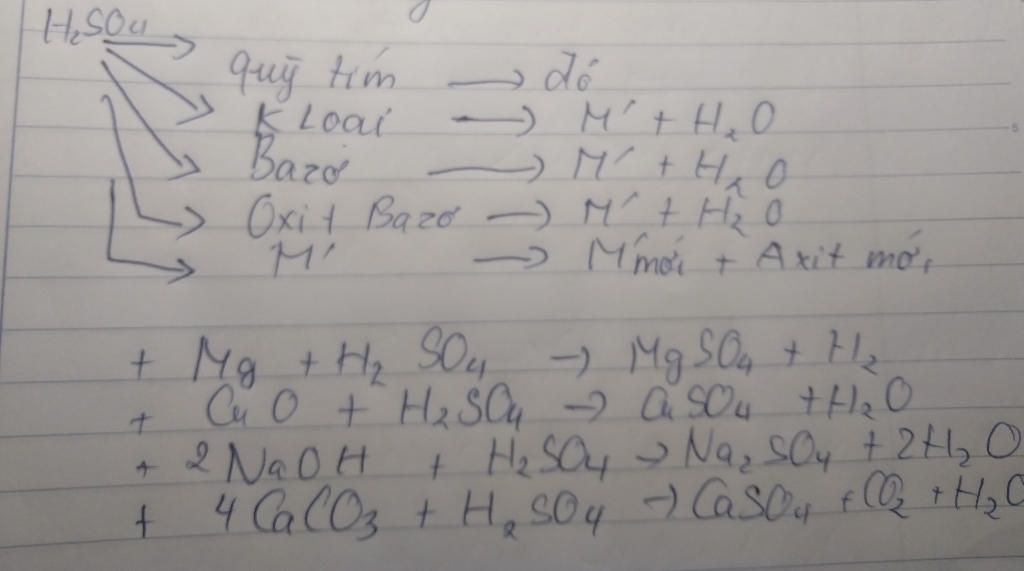 H₂SO₄ →
quỳ tím → đỏ
K Loại → M' + H₂O
Bazơ → M' + H₂O
Oxit Bazơ → M' + H₂O
M' → M' mới + Axit mới
+ Mg + H₂SO₄ → MgSO₄ + H₂
+ CuO + H₂SO₄ → CuSO₄ + H₂O
+ 2NaOH + H₂SO₄ → Na₂SO₄ + 2H₂O
+ 4CaCO₃ + H₂SO₄ → CaSO₄ + CO₂ + H₂O